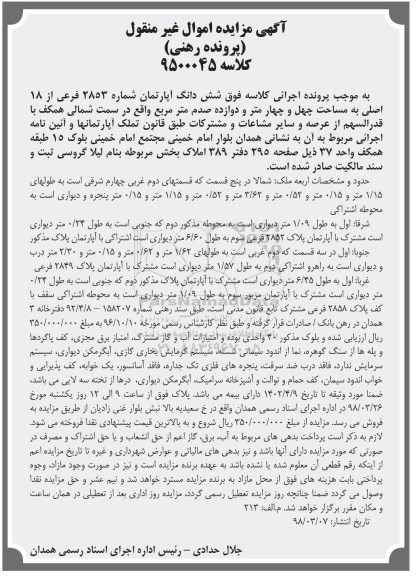 آگهی مزایده اموال غیر منقول
(پرونده رهنی)
کلاسه ۹۵۰۰۰۴۵
به موجب پرونده اجرائی کلاسه فوق شش دانگ آپارتمان شماره ۲۸۵۳ فرعی از ۱۸
اصلی به مساحت چهل و چهار متر و دوازده صدم متر مربع واقع در سمت شمالی همکف با
قدرالسهم از عرصه و سایر مشاعات و مشترکات طبق قانون تملک آپارتمانها و آئین نامه
اجرائی مربوط به آن به نشانی همدان بلوار امام خمینی مجتمع امام خمینی بلوک ۱۵ طبقه
همکف واحد ۳۷ ذیل صفحه ۲۹۵ دفتر ۳۸۹ املاک بخش مربوطه بنام لیلا گروسی ثبت و
سند مالکیت صادر شده است.
حدود و مشخصات اربعه ملک: شمالا در پنج قسمت که قسمتهای دوم غربی چهارم شرقی است به طولهای
۱/۱۵ متر و ۰/۱۵ متر و ۰/۵۲ متر و ۳/۶۲ متر و ۰/۵۲ متر و ۱/۱۵ متر و ۰/۱۵ متر پنجره و دیواری است به
محوطه اشتراکی
شرقا: اول به طول ۱/۰۹ متر دیواری است به محوطه مذکور دوم که جنوبی است به طول ۰/۲۴ متر دیواری
است مشترک با آپارتمان پلاک ۲۸۵۲ فرعی سوم به طول ۶/۶۰ متر دیواری است اشتراکی با آپارتمان پلاک مذکور
جنوبا: اول در سه قسمت که دوم غربی است به طولهای ۱/۶۲ متر و ۰/۶۲ متر و ۰/۱۵ متر و ۲/۳۰ متر درب
و دیواری است به راهرو اشتراکی دوم به طول ۱/۵۷ متر دیواری است مشترک با آپارتمان پلاک ۲۸۴۹ فرعی
غربا: اول به طول ۶/۴۵ متر دیواری است مشترک با آپارتمان پلاک مذکور دوم که جنوبی است به طول ۰/۲۴
متر دیواری است مشترک با آپارتمان مزبور سوم به طول ۱/۰۹ متر دیواری است به محوطه اشتراکی سقف با
کف پلاک ۲۸۵۸ فرعی مشترک تابع قانون مدنی است، طبق سند رهنی شماره ۱۵۸۲۰۷ – ۹۲/۴/۸ دفترخانه ۳
همدان در رهن بانک صادرات قرار گرفته و طبق نظر کارشناس رسمی مورخه ۹۶/۱۰/۱۰ به مبلغ ۳۵۰/۰۰۰/۰۰۰
ریال ارزیابی شده و بلوک مذکور ۴۰ واحدی بوده و امتیازات آب و گاز مشترک، امتیاز برق مجزی، کف پاگردها
و پله ها از سنگ گوهره، نما از اندود سیمانی شسته، سیستم گرمایش بخاری گازی، آبگرمکن دیواری، سیستم
سرمایش ندارد، فاقد درب ضد سرقت، پنجره های فلزی تک جداره، فاقد آسانسور، یک خوابه، کف پذیرایی و
خواب اندود سیمان، کف حمام و توالت و آشپزخانه سرامیک، آبگرمکن دیواری، درها از تخته سه لایی می باشد،
ضمنا مورد وثیقه تا تاریخ ۱۴۰۲/۴/۹ دارای بیمه می باشد. پلاک فوق از ساعت ۹ الی ۱۲ روز یکشنبه مورخ
۹۸/۰۳/۲۶ در اداره اجرای اسناد رسمی همدان واقع در خ سعیدیه بالا نبش بلوار غنی زادیان از طریق مزایده به
فروش می رسد. مزایده از مبلغ ۳۵۰/۰۰۰/۰۰۰ ریال شروع و به بالاترین قیمت پیشنهادی نقدا فروخته می شود.
لازم به ذکر است پرداخت بدهی های مربوط به آب، برق، گاز اعم از حق انشعاب و یا حق اشتراک و مصرف در
صورتی که مورد مزایده دارای آنها باشد و نیز بدهی های مالیاتی و عوارض شهرداری و غیره تا تاریخ مزایده اعم
از اینکه رقم قطعی آن معلوم شده یا نشده باشد به عهده برنده مزایده است و نیز در صورت وجود مازاد، وجوه
پرداختی بابت هزینه های فوق از محل مازاد به برنده مزایده مسترد خواهد شد و نیم عشر و حق مزایده نقدا
وصول می گردد ضمنا چنانچه روز مزایده تعطیل رسمی گردد، مزایده روز اداری بعد از تعطیلی در همان ساعت
و مکان مقرر برگزار خواهد شد. م.الف: ۲۱۳
تاریخ انتشار: ۹۸/۰۳/۰۷
جلال حدادی – رئیس اداره اجرای اسناد رسمی همدان